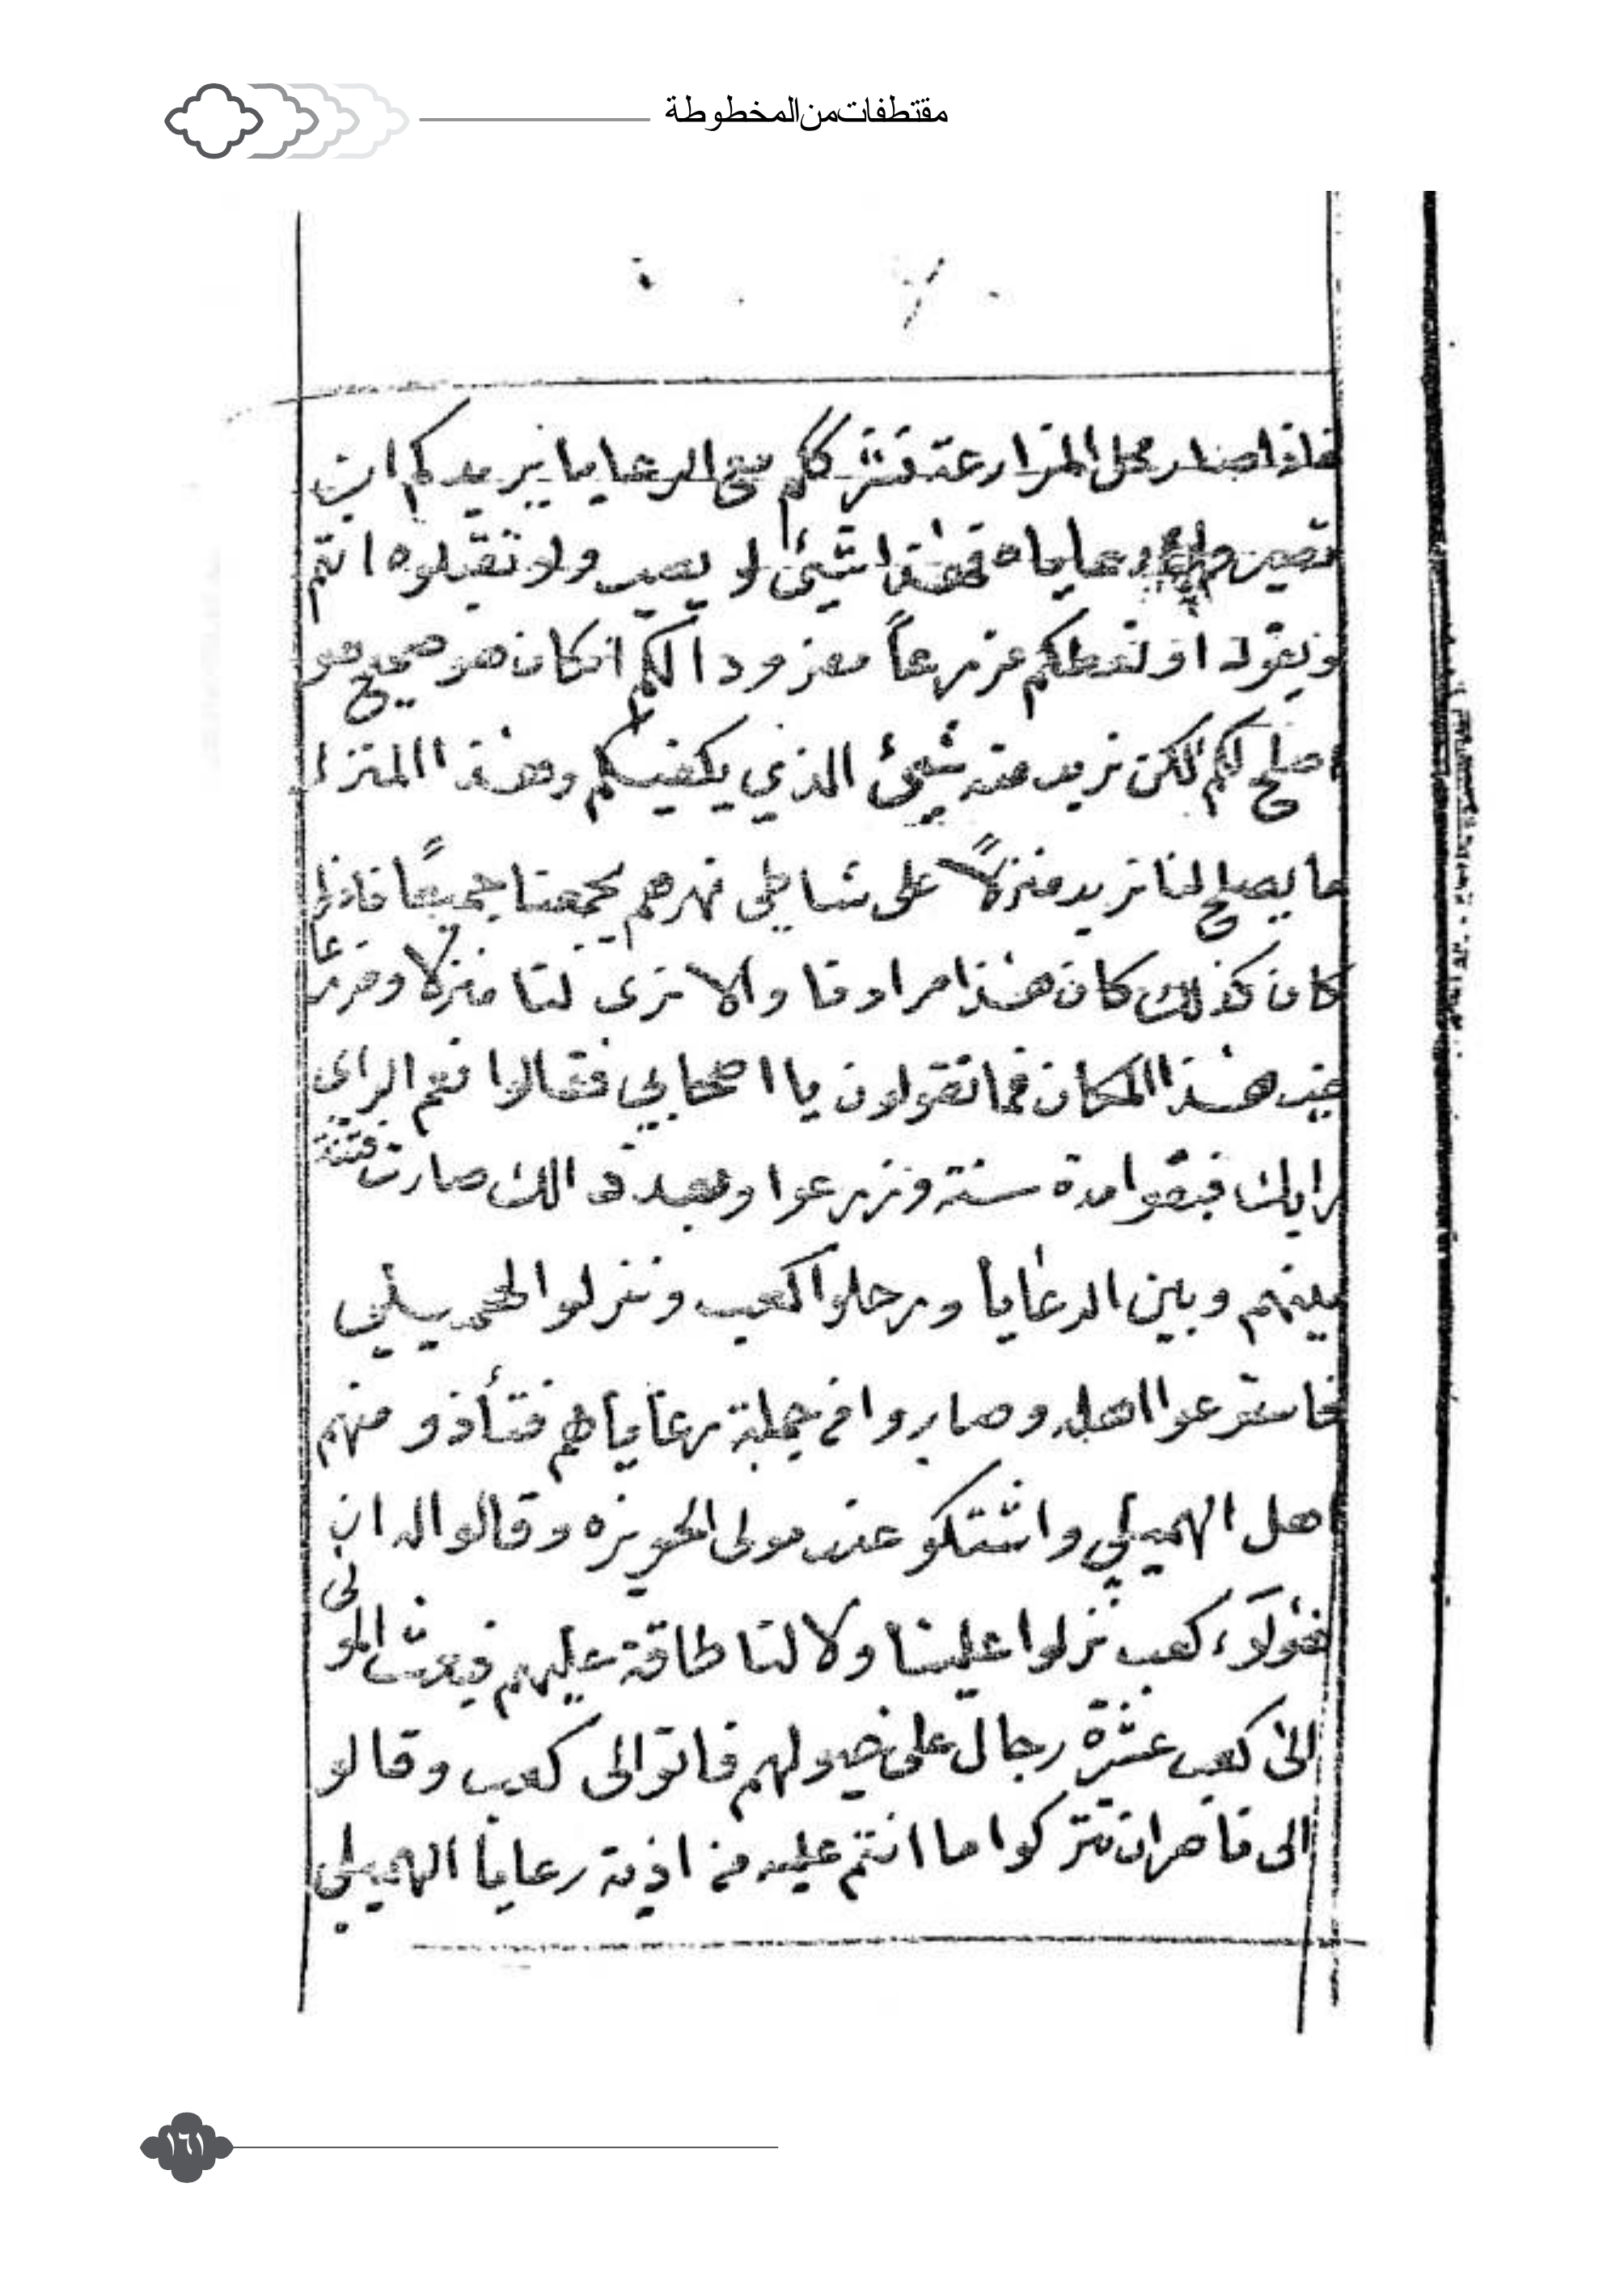 مقتطفات من المخطوطة
فاذا صار محل المزارعة فنشرككم مع الرعايا يريدكم ان
تصيرو رعاياه فهذا شيئ لا يصير ولا تقبلوه انتم
ويقول او نعطكم مزرعاً مفزودا لكم انكان هو صحيح هو
اصلح لكم لكن نريد منه شيئ الذي يكفيكم وهذا المنزل
ما يصلح لنا نريد منزلاً على شاطي نهرهم يجمعنا جميعًا فاذا
كان كذلك كان هذا مرادنا والا نرى لنا منزلا ومزرعا
غير هذا المكان فما تقولون يا اصحابي فقالوا نعم الراي
رايك فبقوا مدة سنة وزرعوا وبعد ذالك صارت فتنة
بينهم وبين الرعايا ورحلوا كعب ونزلوا الحميلي
فاستوعوا اهله وصاروا في جملة رعاياهم فتأذو منهم
اهل الهميلي واشتكو عند مولى الحويزه وقالوا له ان
هؤلآء كعب نزلوا علينا ولا لنا طاقة عليهم فبعث المولى
الى كعب عشرة رجال على خيولهم فاتوا الى كعب وقالو
الى ناصر ان تتركوا ما انتم عليه من اذية رعايا الهميلي
١٦١